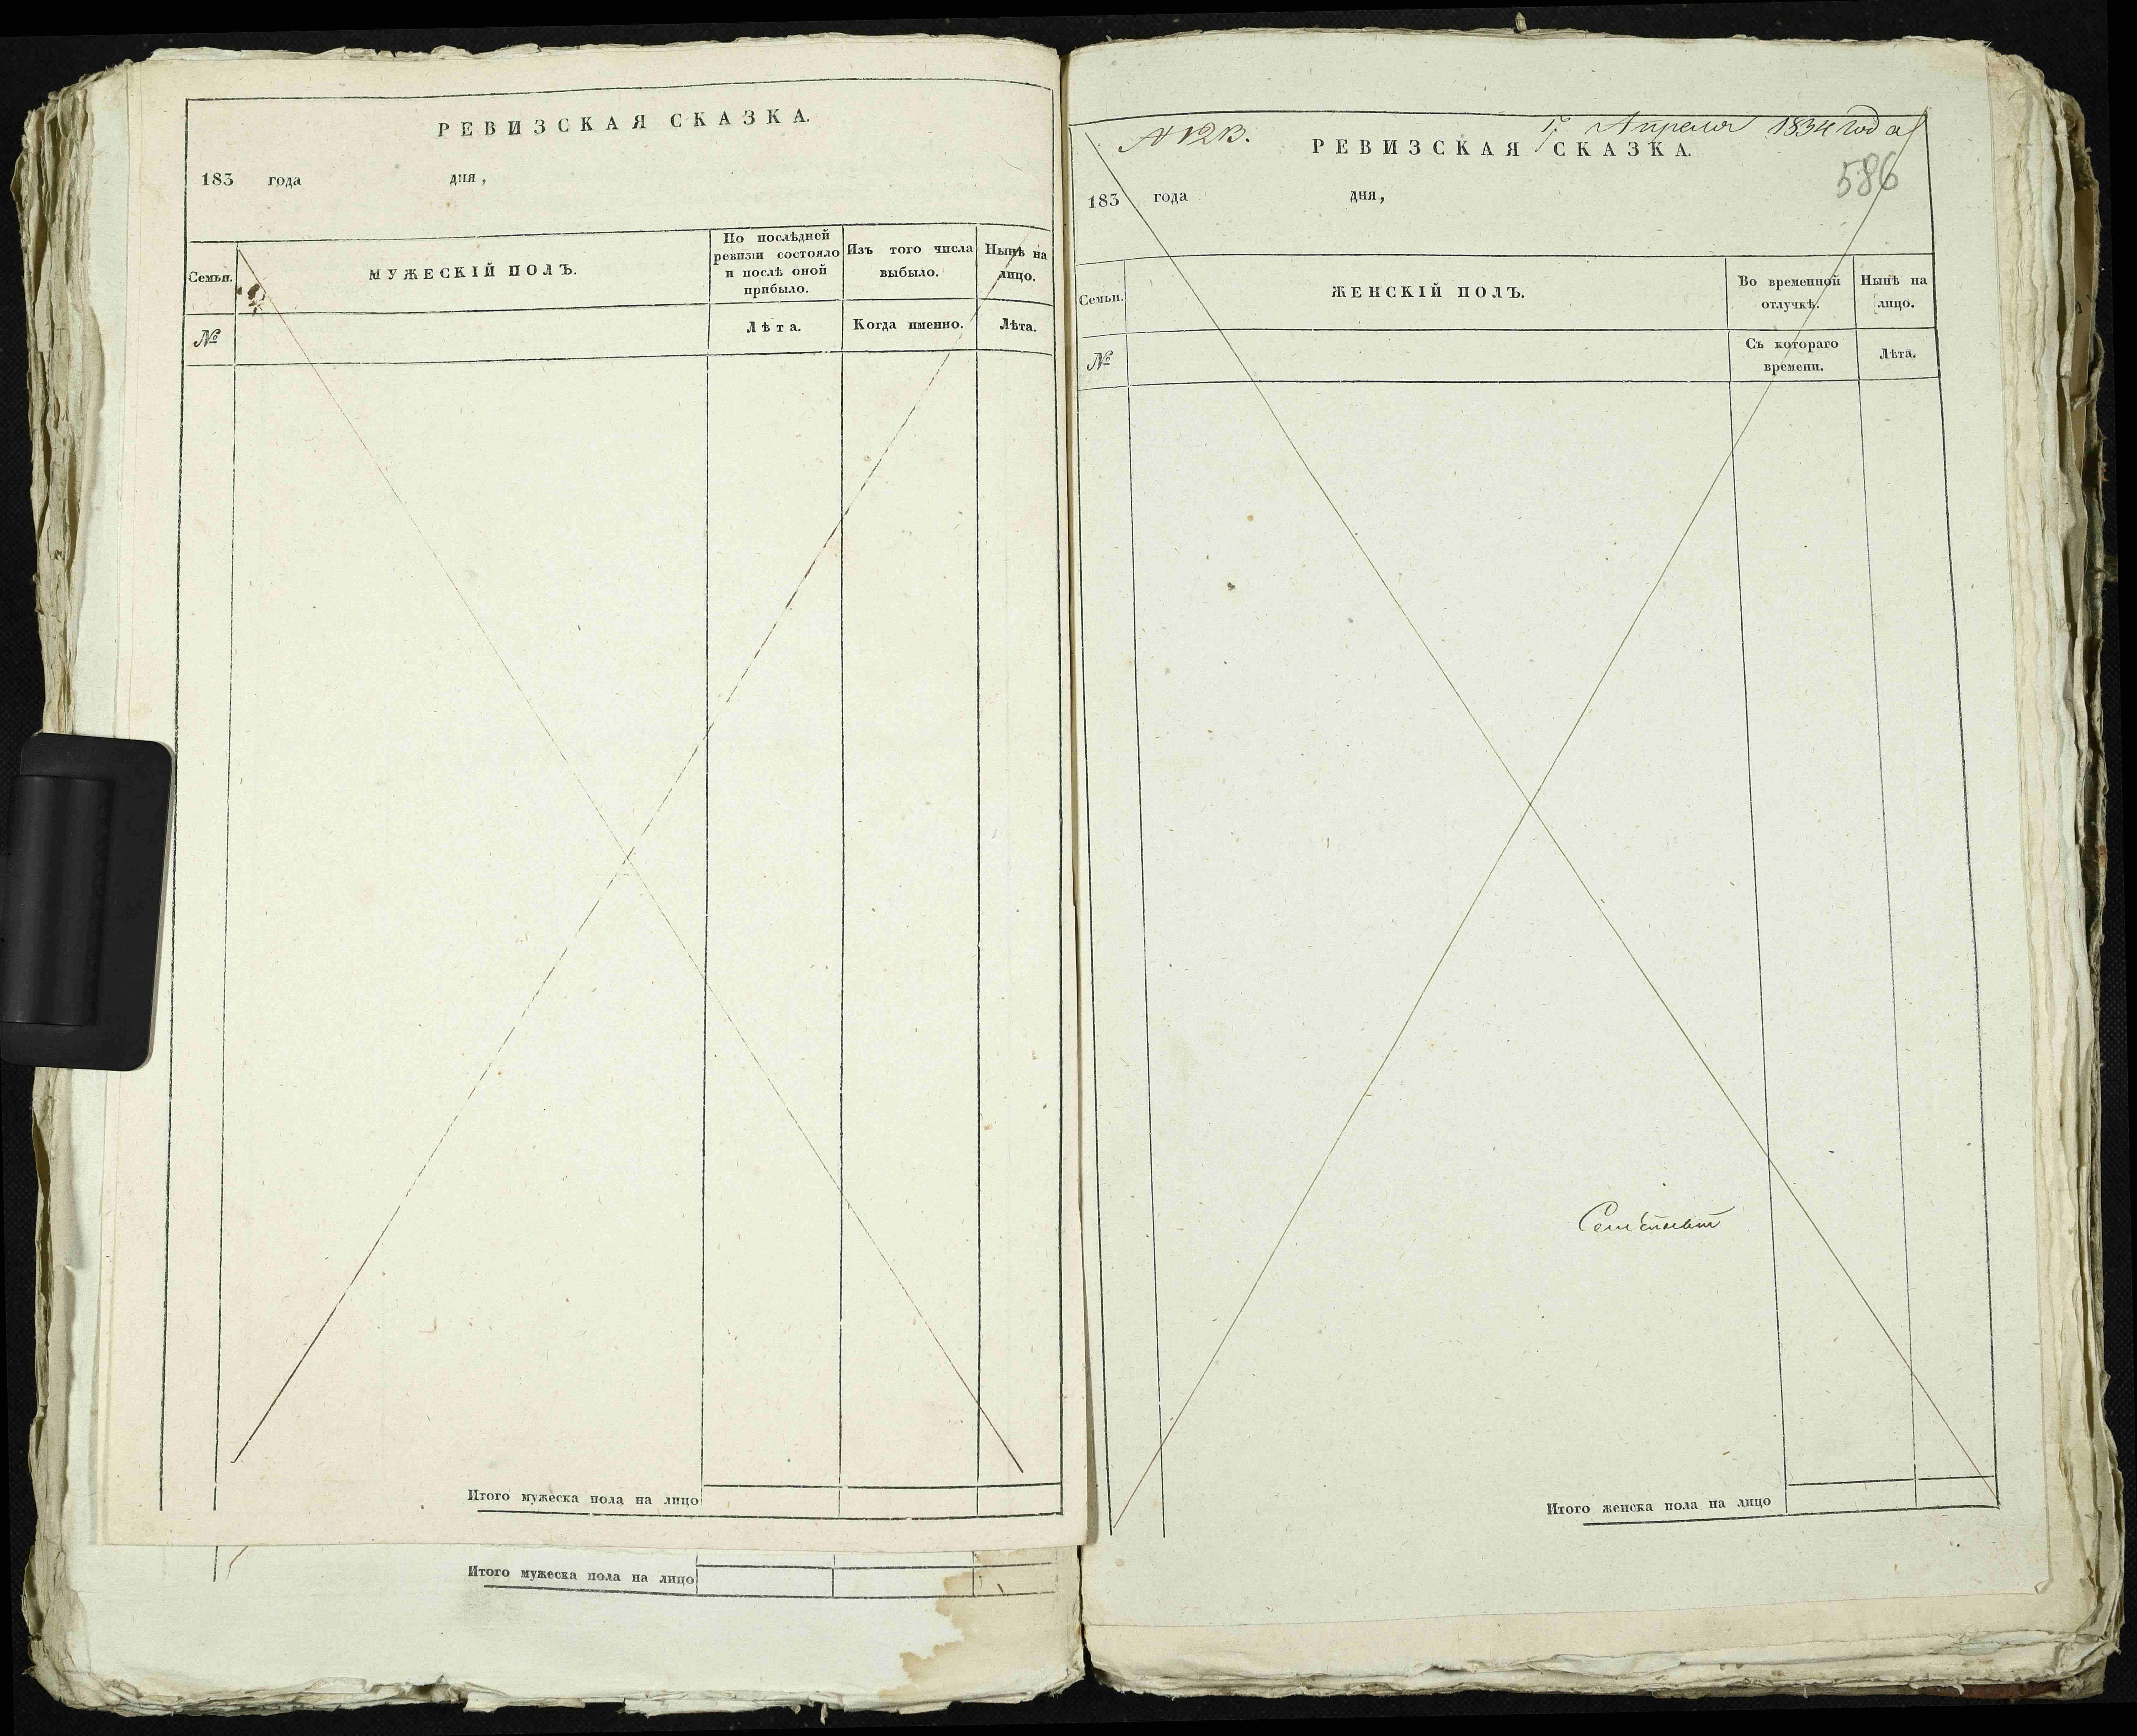 РЕВИЗСКАЯ СКАЗКА.
183 года дня,
Семьи.
МУЖЕСКІЙ ПОЛЪ.
По послѣдней
ревизіи состояло
и послѣ оной
прибыло.
Изъ того числа
выбыло.
Нынѣ на
лицо.
№
Лѣта.
Когда именно.
Лѣта.
Итого мужеска пола на лицо
Итого мужеска пола на лицо
17 Апреля 1834 года
РЕВИЗСКАЯ СКАЗКА.
586
183 года дня,
Семьи.
ЖЕНСКІЙ ПОЛЪ.
Во временной
отлучкѣ.
Нынѣ на
лицо.
№
Съ котораго
времени.
Лѣта.
Итого женска пола на лицо